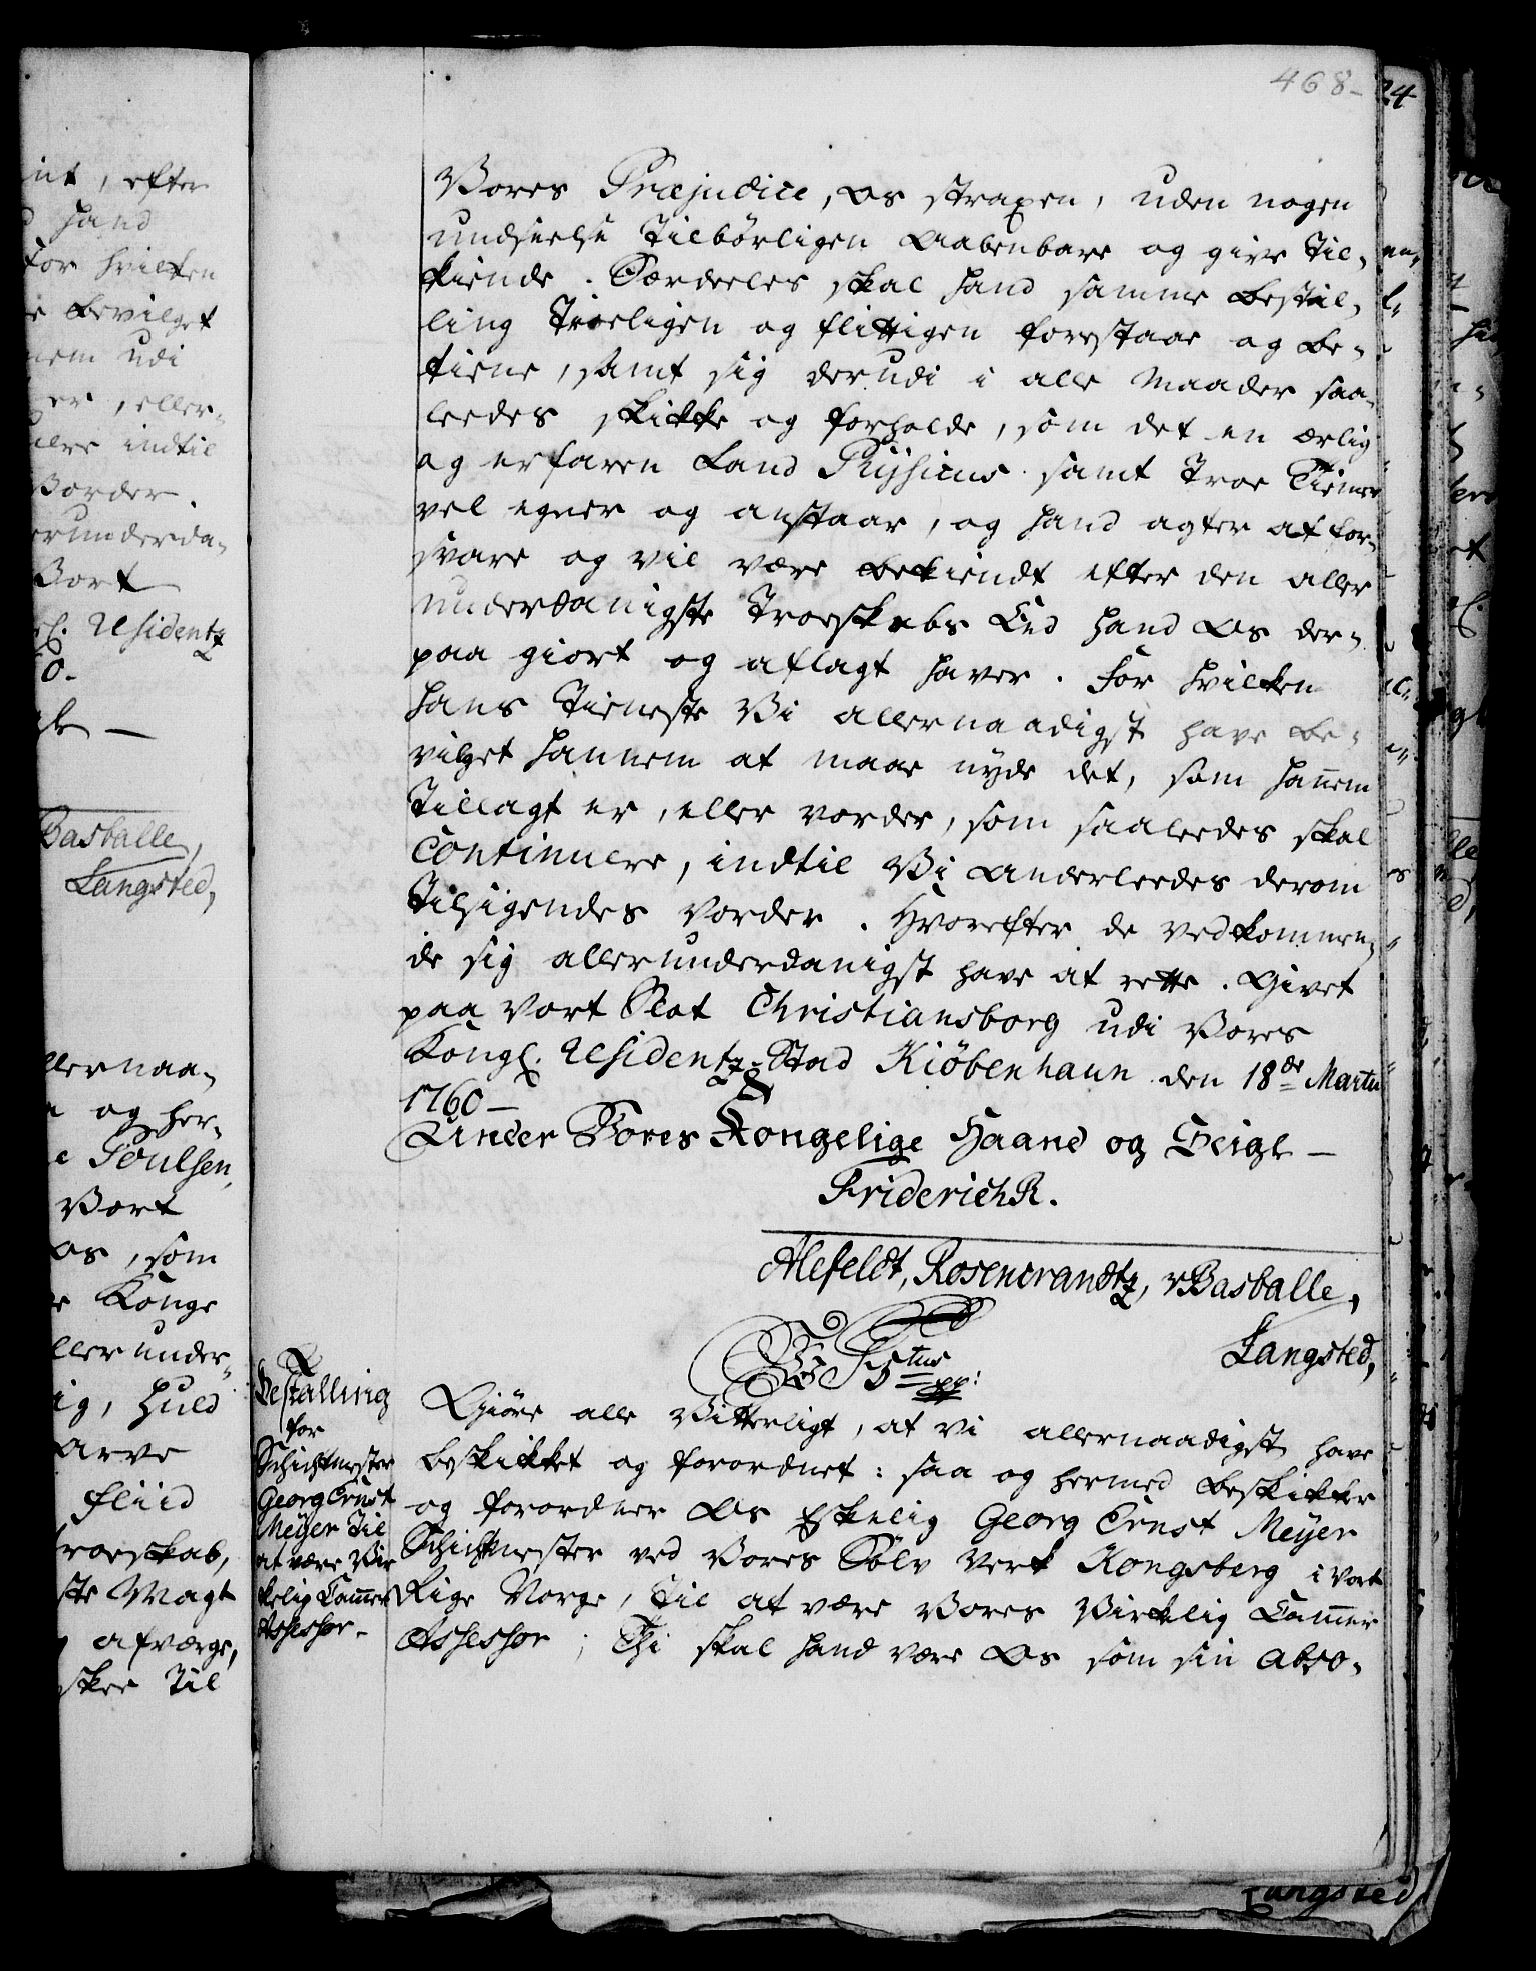 468-
Vores Præjudice, Os straxen, uden nogen
undseelse Tilbørligen Aabenbare og give Til-
kiende. Særdeeles skal hand samme Bestil-
ling Troeligen og flittigen forestaae og be-
tiene, samt sig derudi i alle Maader saa-
leedes skikke og forholde, som det en ærlig
og erfaren Land Physicus samt Troe Tienere
vel egner og anstaar, og hand agter at for-
svare og vil være bekiendt efter den aller
underdanigste Troeskabs Eed hand Os der-
paa giort og aflagt haver. For hvilken
hans Tieneste Vi allernaadigst have be-
vilget hannem at maae nyde det, som hañem
Tillagt er, eller vorder, som saaleedes skal
Continuere, indtil Vi Anderleedes derom
Tilsigendes vorder. Hvorefter de vedkommen-
de sig allerunderdanigst have at rette. Givet
paa Vort Slot Christiansborg udi Vores
Kongl. Residentz-Stad Kiøbenhaun den 18de Martii
1760-
Under Vores Kongelige Haand og Seigl-
Friderich R.
Alefeldt, Rosencrandtz, vBasballe,
Langsted,
Vi F 5tus pp:
Giøre alle Vitterligt, at vi allernaadigst have
beskikket og forordnet: saa og hermed beskikker
og forordner Os Elskelig Georg Ernst Meyer
Schichtmester ved Vores Sølv Verk Kongsberg i Vort
Rige Norge, Til at være Vores Virkelig Cam̃er
Assessor; Thi skal hand være Os som sin Abso-
Bestalling
for
Schichtmester
Georg Ernst
Meyer Til
at være Vir
kelig Cam̃er
Assessor.